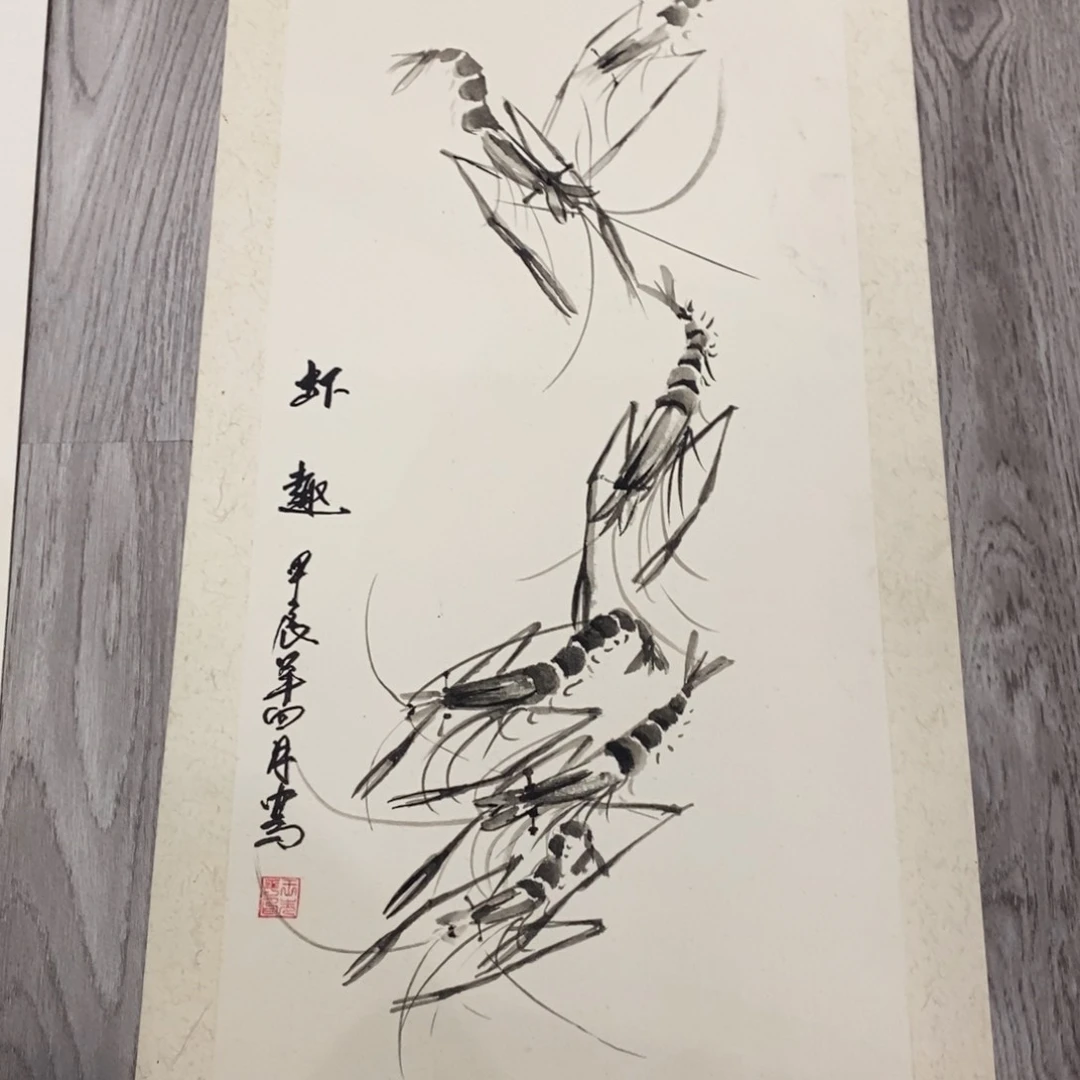 虾趣
甲辰年四月写